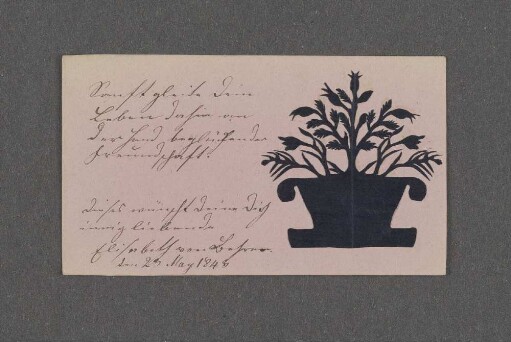 Sanft gleite Dein
Leben dahin an
der Hand beglückender
Freundschaft.
Dieses wünscht Deine Dich
innig liebende
Elisabeth von
den 23 May 1848